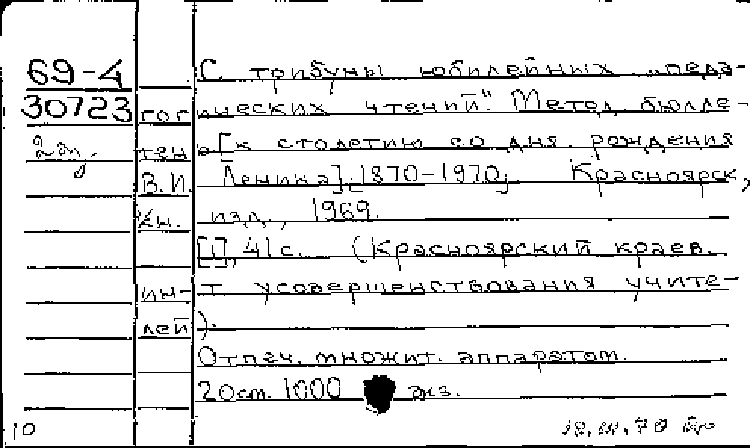 69-4 С трибуны юбилейных „педа-
30723 гогических чтений". Метод. бюлле-
2 эк. тень [к столетию со дня рождения
В.И. Ленина]. [1870-1970]. Красноярск,
Кн. изд., 1969.
[1], 41 с. (Красноярский краев.
ин-т усовершенствования учите-
лей).
Отпеч. множит. аппаратом.
20 см. 1000 экз.
10